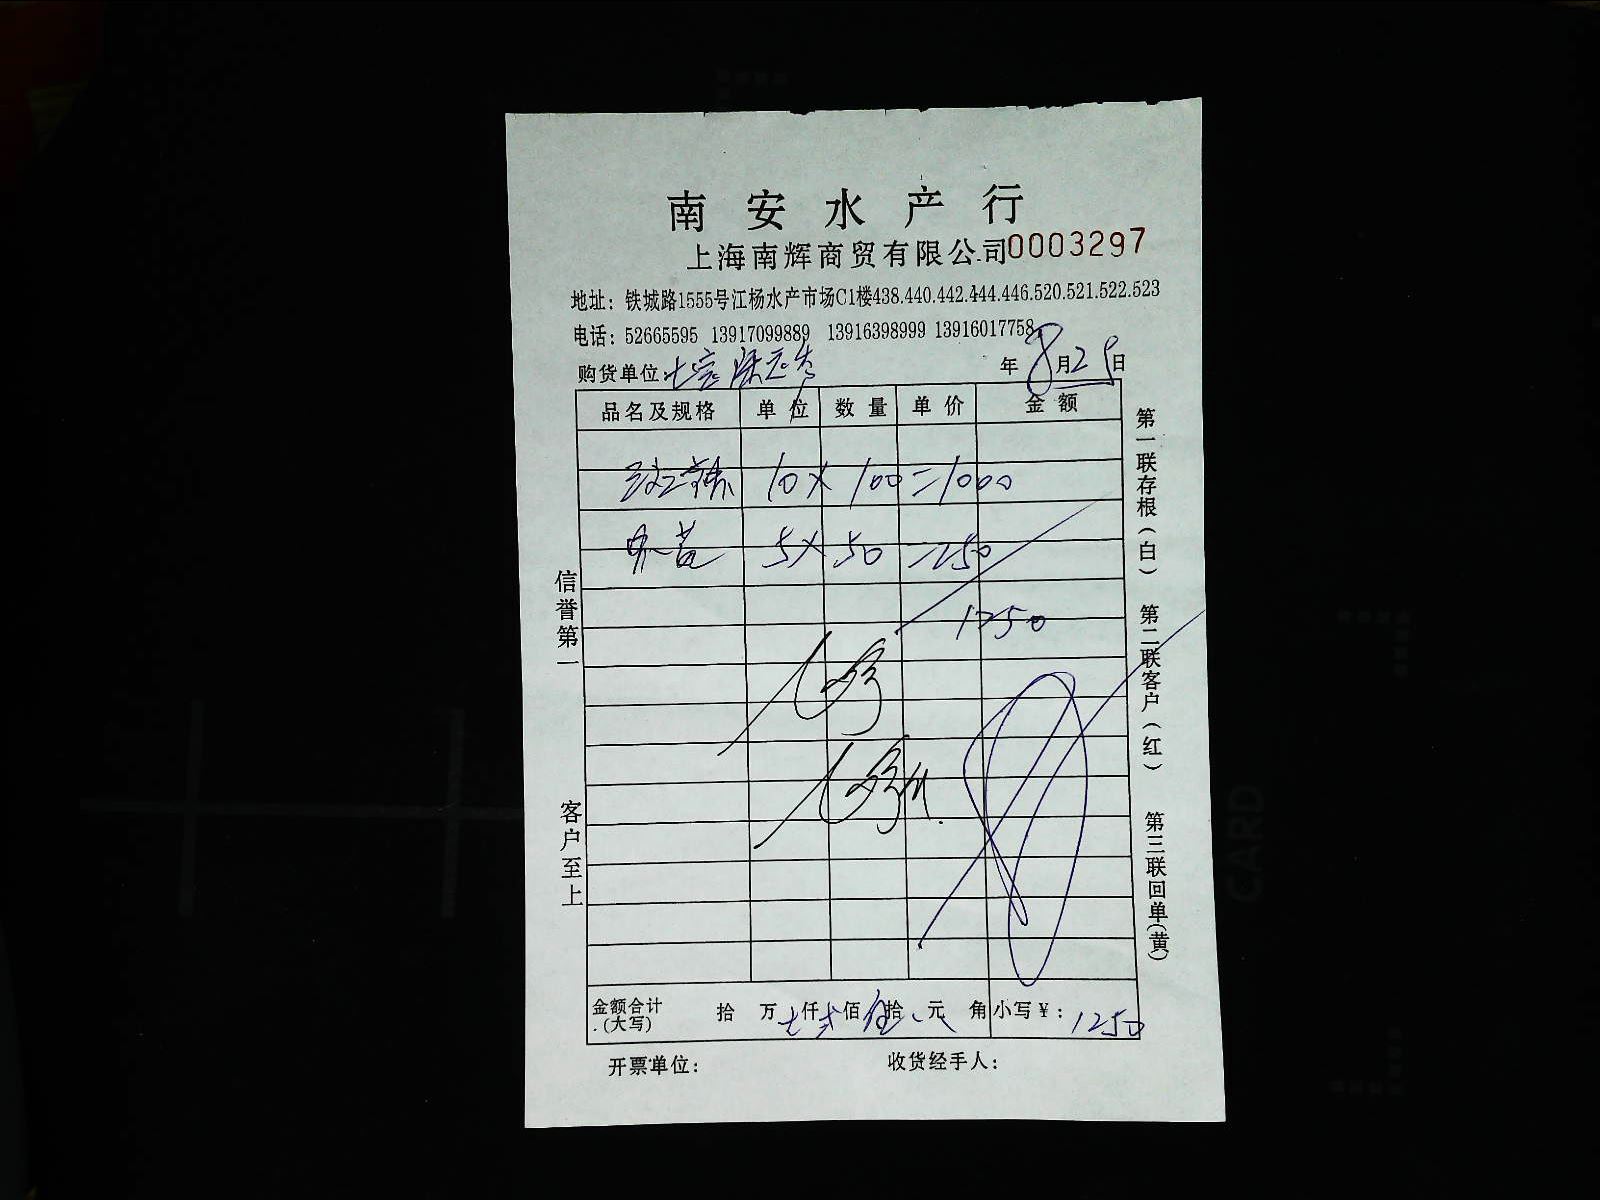 南安水产行
上海南辉商贸有限公司0003297
地址：铁城路1555号江杨水产市场C1楼438.440.442.444.446.520.521.522.523
电话：52665595 13917099889 13916398999 13916017758
购货单位： 年8月29日
品名及规格 单位 数量 单价 金额
10×100=1000
5×50=250
1250
金额合计(大写) 拾 万 仟 佰 拾 元 角 小写￥：1250
开票单位： 收货经手人：
信誉第一
客户至上
第一联存根(白) 第二联客户(红) 第三联回单(黄)
CARD